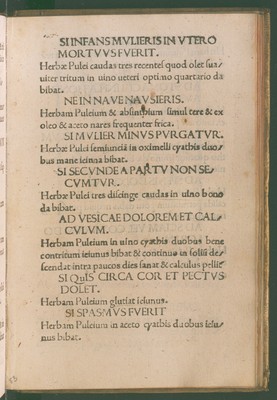 SI INFANS MVLIERIS IN VTERO
MORTVVS FVERIT.
Herbæ Pulei caudas tres recentes quod olet sua/
uiter tritum in uino ueteri optimo quartario da
bibat.
NE IN NAVE NAVSIERIS.
Herbam Puleium & absinthium simul tere & ex
oleo & aceto nares frequenter frica.
SI MVLIER MINVS PVRGATVR.
Herbæ Pulei semiuncia in oximelli cyathis duo/
bus mane ieiuna bibat.
SI SECVNDE A PARTV NON SE/
CVNTVR.
Herbæ Pulei tres discinge caudas in uino bono
da bibat.
AD VESICAE DOLOREM ET CAL/
CVLVM.
Herbam Puleium in uino cyathis duobus bene
contritum ieiunus bibat & continuo in soliū des/
cendat intra paucos dies sanat & calculus pellit
SI QuIS CIRCA COR ET PECTVS
DOLET.
Herbam Puleium glutiat ieiunus.
SI SPASMVS FVERIT
Herbam Puleium in aceto cyathis duobus ieiu/
nus bibat.